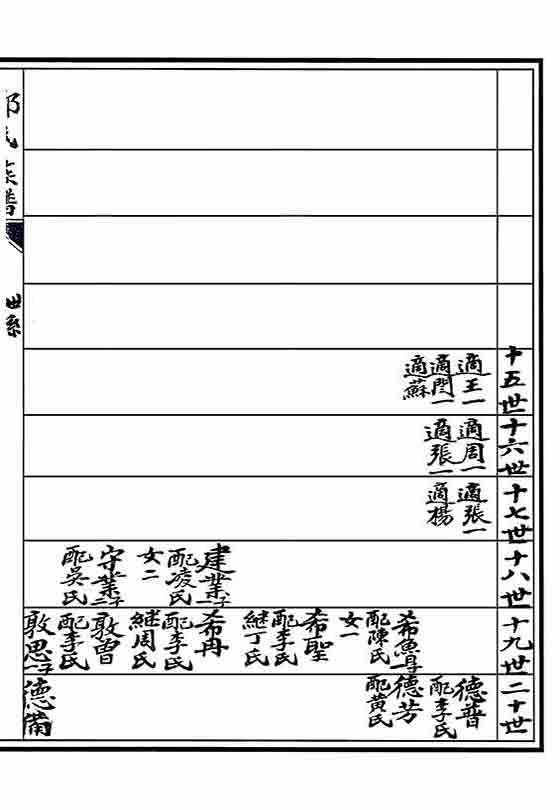 十五世
適王一
適閆一
適蘇
十六世
適周一
適張一
十七世
適張一
適楊
十八世
建業子
配凌氏
女二
守業二子
配吳氏
十九世
希魯
配陳氏
女一
希聖
配李氏
継丁氏
希冉
配李氏
継周氏
敦曾
配李氏
敦思一子
二十世
德普
配李氏
德芳
配黃氏
德備
氏族譜
世系